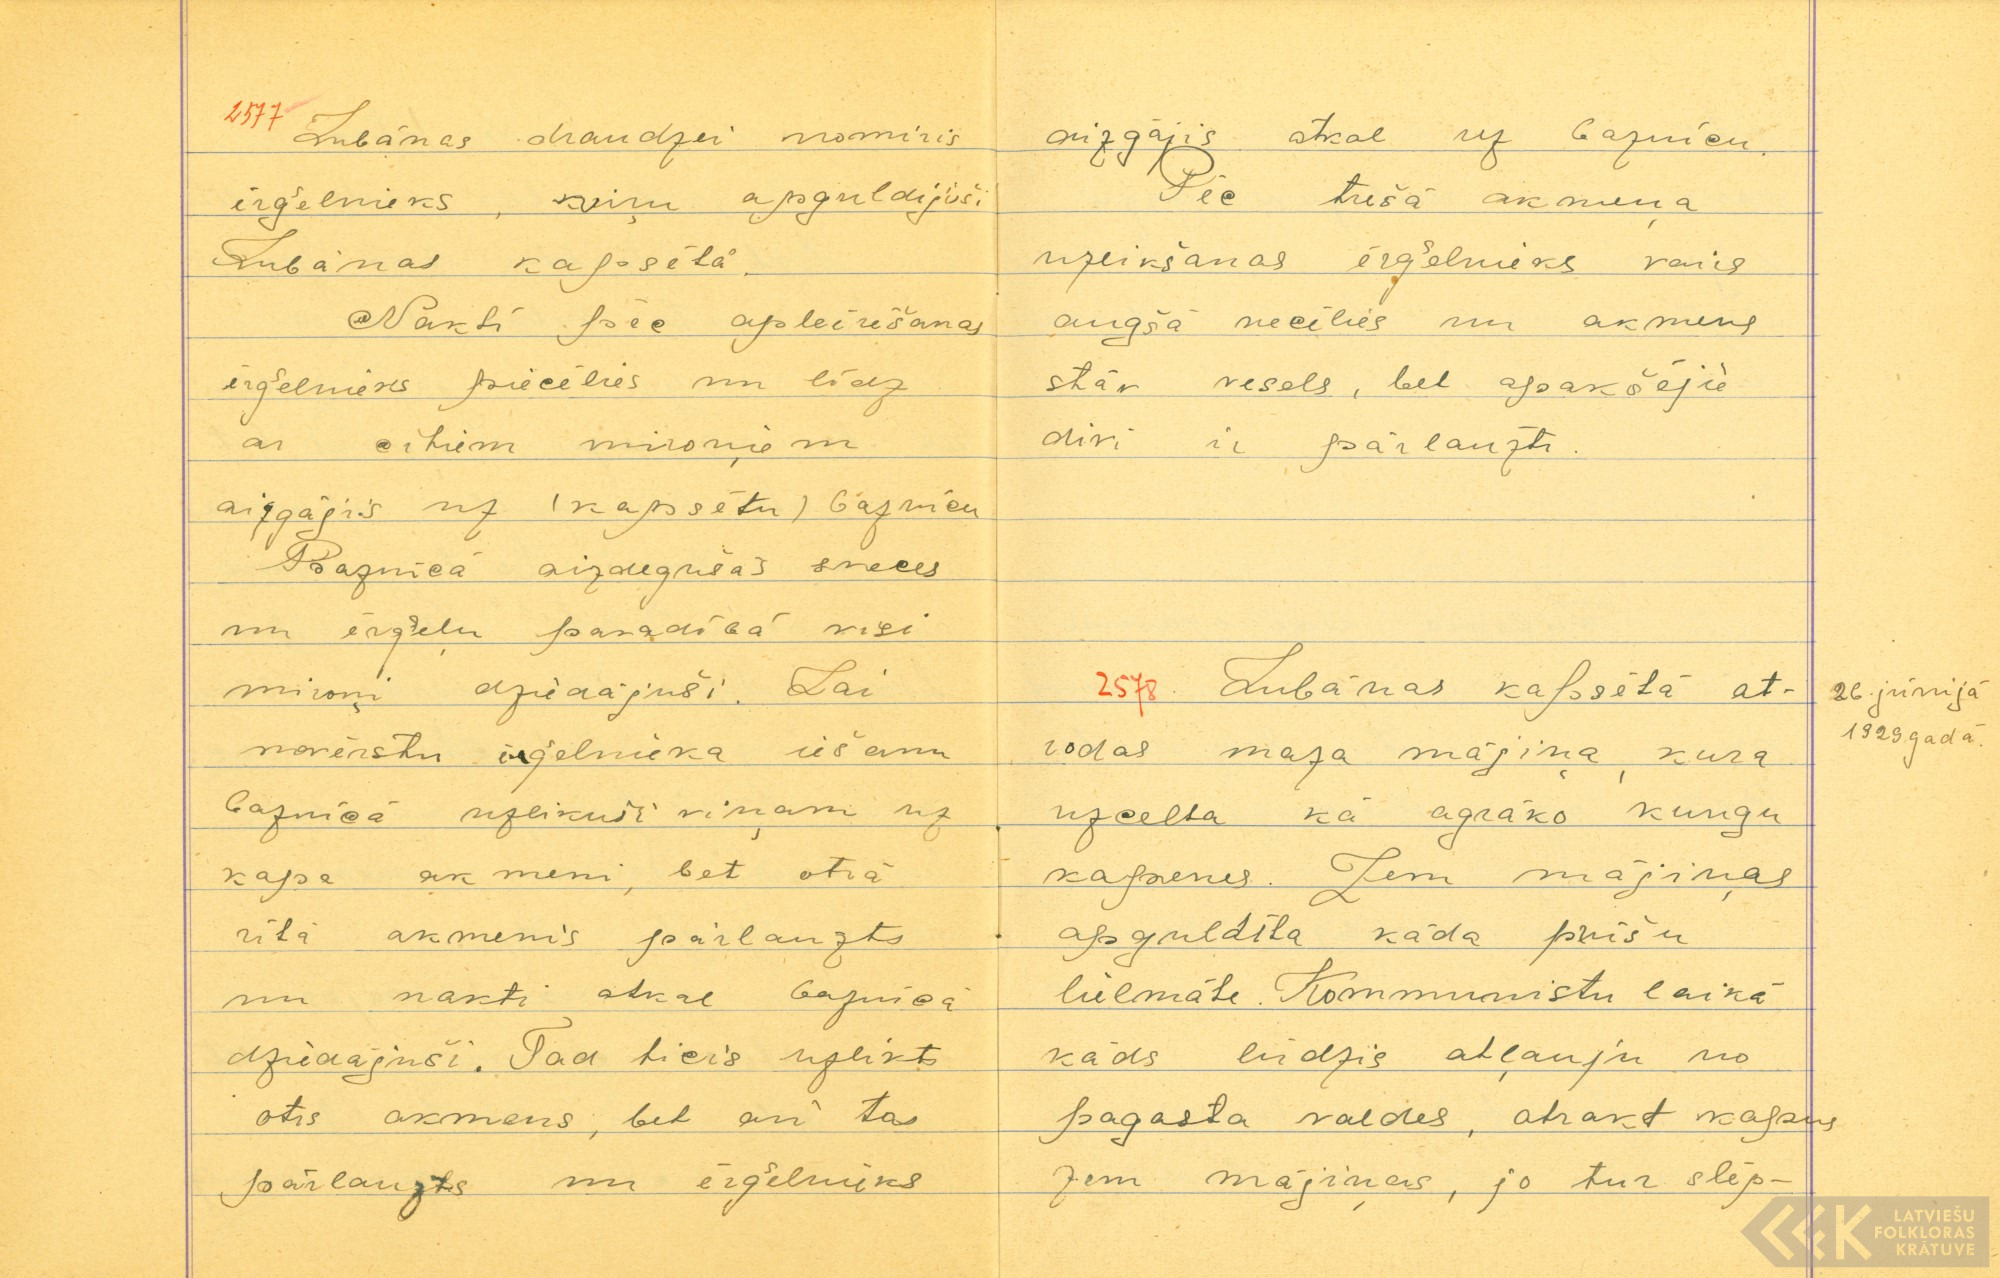 2577 Lubānas draudzei nomiris
ērģelnieks, viņu apguldijuši
Lubānas kapsētā.
Naktī pēc apbeirešanas
ērģelnieks piecēlies un līdz
ar citiem miroņiem
aizgājis uz (kapsētu) baznīcu
Baznīcā aizdegušas sveces
un ērģeļu pavadībā visi
miroņi dziedājuši. Lai
novērstu ērģelnieka iešanu
baznīcā uzlikuši viņam uz
kapa akmeni, bet otrā
rītā akmenis pārlauzts
un naktī atkal baznīcā
dziedājuši. Tad ticis uzlikts
otrs akmens, bet arī tas
pārlauzts un ērģelnieks
aizgājis atkal uz baznīcu.
Pēc trešā akmeņa
uzlikšanas ērģelnieks vairs
augšā necēlies un akmens
stāv vesels, bet apakšējie
divi ir pārlauzti.
2578 Lubānas kapsētā at-
rodas maza mājiņa, kura
uzcelta kā agrāko kungu
kapenes. Zem mājiņas
apguldīta kāda prūšu
lielmāte. Kommunistu laikā
kāds lūdzis atļauju no
pagasta valdes, atrakt kapus
zem mājiņas, jo tur slēp-
26. jūnijā
1929 gadā.
LATVIEŠU
FOLKLORAS
KRĀTUVE